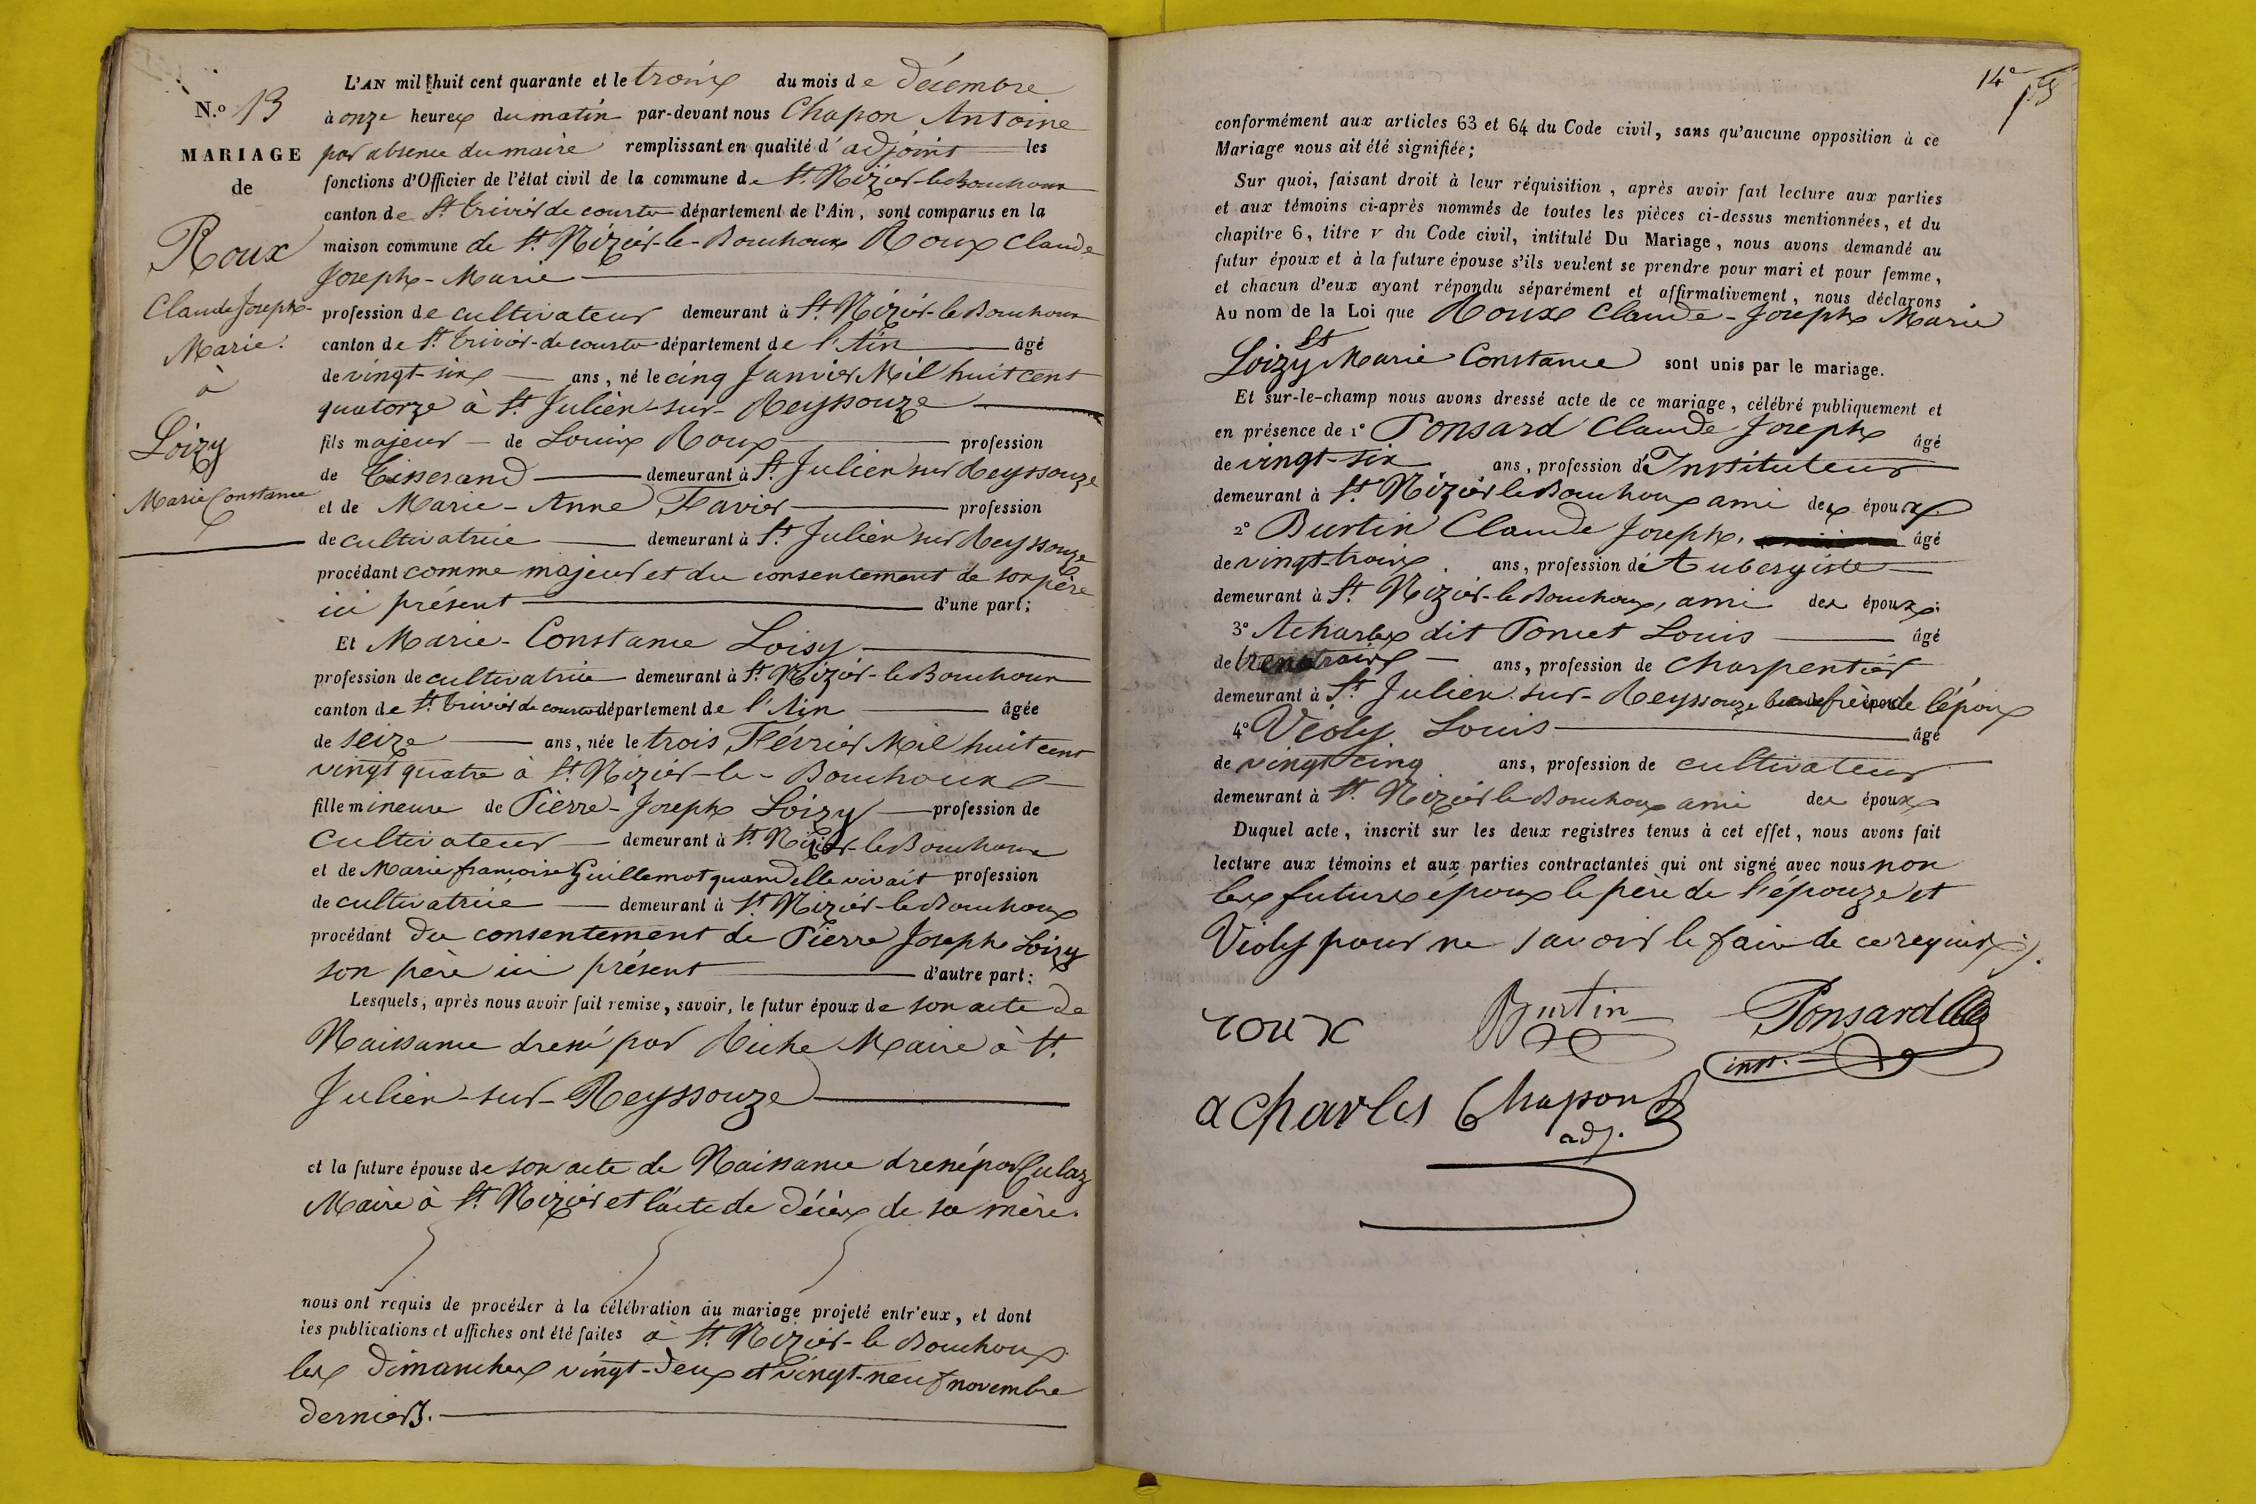 N.º 13
MARIAGE
de
Roux
Claude Joseph-
Marie.
à
Loizy
Marie Constance
L'AN mil huit cent quarante et le trois du mois de décembre
à onze heures du matin par-devant nous Chapon Antoine
par absence du maire remplissant en qualité d'adjoint les
fonctions d'Officier de l'état civil de la commune de St. Nizier-le-Bouchoux
canton de St. trivier de courtes département de l'Ain, sont comparus en la
maison commune de St. Nizier-le-Bouchoux Roux Claude
Joseph-Marie
profession de cultivateur demeurant à St. Nizier-le Bouchoux
canton de St. trivier-de courtes département de l'Ain âgé
de vingt-six ans, né le cinq Janvier Mil huit cent
quatorze à St. Julien-sur-Reyssouze
fils majeur de Louis Roux profession
de Tisserand demeurant à St. Julien sur Reyssouze
et de Marie-Anne Favier profession
de cultivatrice demeurant à St. Julien sur Reyssouze
procédant comme majeur et du consentement de son père
ici présent d'une part;
Et Marie-Constance Loisy
profession de cultivatrice demeurant à St. Nizier-le Bouchoux
canton de St. trivier de courtes département de l'Ain âgée
de seize ans, née le trois Février Mil huit cent
vingt quatre à St. Nizier-le-Bouchoux
fille mineure de Pierre-Joseph Loizy profession de
Cultivateur demeurant à St. Nizier-le Bouchoux
et de Marie françoise Guillemot quand elle vivait profession
de cultivatrice demeurant à St. Nizier-le Bouchoux
procédant du consentement de Pierre Joseph Loizy
son père ici présent d'autre part:
Lesquels, après nous avoir fait remise, savoir, le futur époux de son acte de
Naissance dressé par Riche Maire à St.
Julien-sur-Reyssouze
et la future épouse de son acte de Naissance dressé par Culaz
Maire à St. Nizier et l'acte de décès de sa mère.
nous ont requis de procéder à la célébration du mariage projeté entr'eux, et dont
les publications et affiches ont été faites à St. Nizier-le Bouchoux
les dimanches vingt-deux et vingt-neuf novembre
derniers.
14e
conformément aux articles 63 et 64 du Code civil, sans qu'aucune opposition à ce
Mariage nous ait été signifiée;
Sur quoi, faisant droit à leur réquisition, après avoir fait lecture aux parties
et aux témoins ci-après nommés de toutes les pièces ci-dessus mentionnées, et du
chapitre 6, titre v du Code civil, intitulé Du Mariage, nous avons demandé au
futur époux et à la future épouse s'ils veulent se prendre pour mari et pour femme,
et chacun d'eux ayant répondu séparément et affirmativement, nous déclarons
Au nom de la Loi que Roux Claude-Joseph Marie
et
Loizy Marie Constance sont unis par le mariage.
Et sur-le-champ nous avons dressé acte de ce mariage, célébré publiquement et
en présence de 1º Ponsard Claude Joseph âgé
de vingt-six ans, profession d'Instituteur
demeurant à St. Nizier le Bouchoux ami des époux
2º Burtin Claude Joseph, âgé
de vingt-trois ans, profession d'Aubergiste
demeurant à St. Nizier-le Bouchoux, ami des époux;
3º Acharles dit Poncet Louis âgé
de ans, profession de charpentier
demeurant à St. Julien-sur-Reyssouze beau frère de l'époux
4º Violy Louis âgé
de vingt cinq ans, profession de cultivateur
demeurant à St. Nizier le Bouchoux ami des époux
Duquel acte, inscrit sur les deux registres tenus à cet effet, nous avons fait
lecture aux témoins et aux parties contractantes qui ont signé avec nous non
les futurs époux le père de l'épouze et
Violy pour ne savoir le faire de ce requis.
roux Burtin Ponsard
inst.
acharles Chapon
adj.